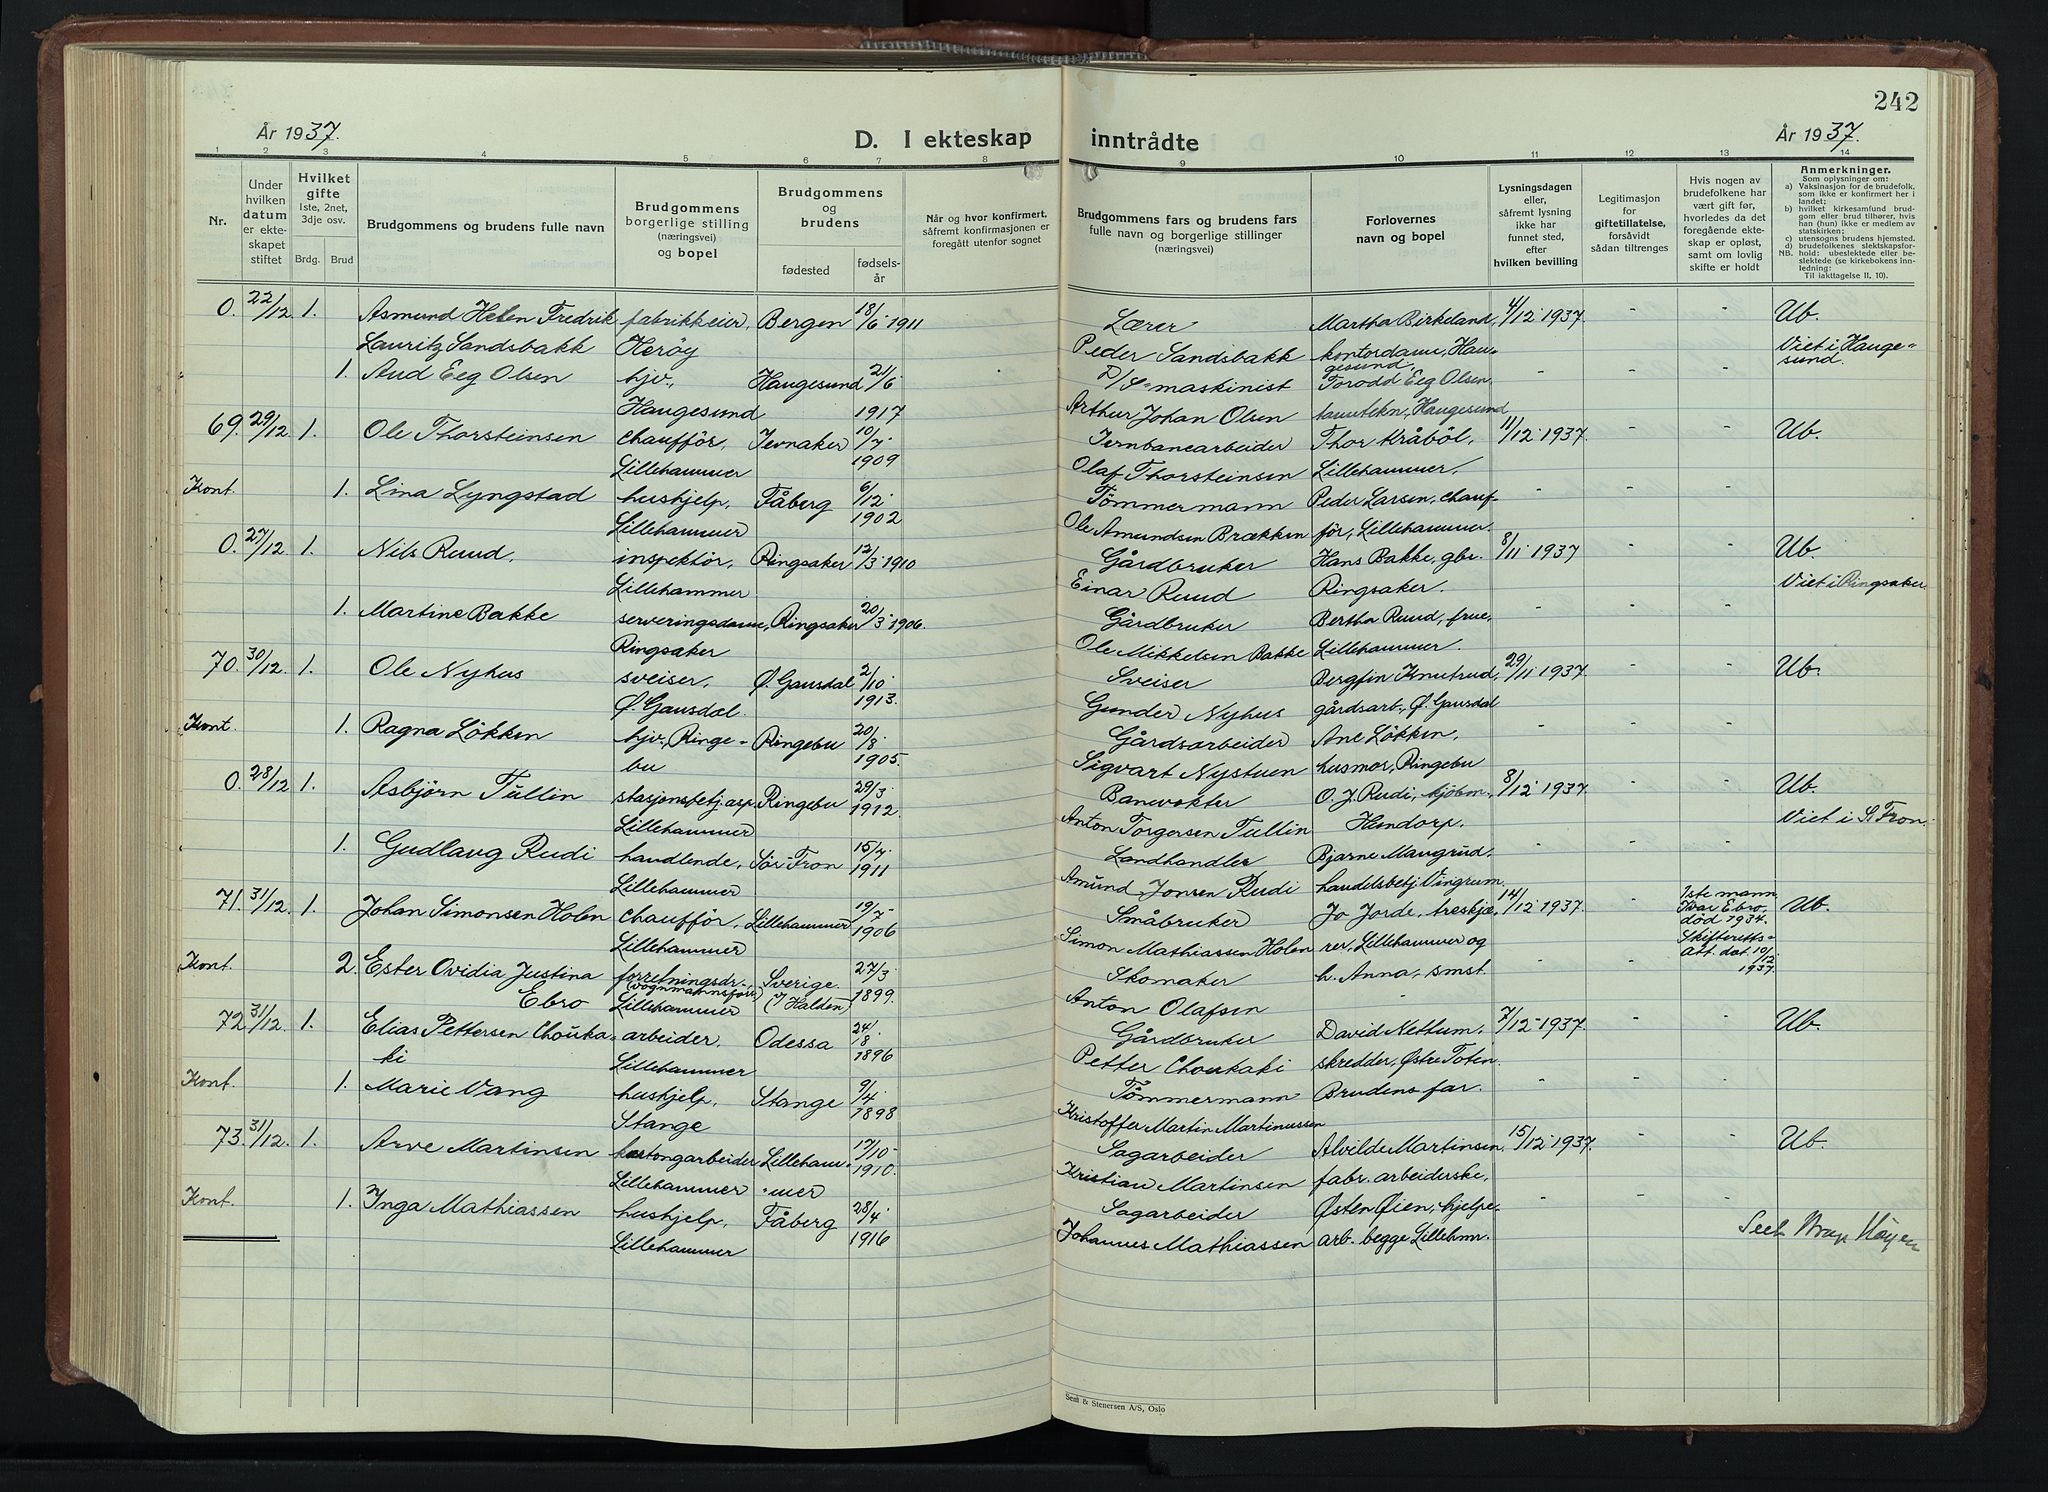 242
År 1937.
D. I ekteskap inntrådte
År 1937.
1 2 3 4 5 6 7 8 9 10 11 12 13 14
Nr.
Under hvilken datum er ekteskapet stiftet
Hvilket gifte 1ste, 2net, 3dje osv.
Brdg. Brud
Brudgommens og brudens fulle navn
Brudgommens borgerlige stilling (næringsvei) og bopel
Brudgommens og brudens
fødested
fødsels-år
Når og hvor konfirmert, såfremt konfirmasjonen er foregått utenfor sognet
Brudgommens fars og brudens fars fulle navn og borgerlige stillinger (næringsvei)
Forlovernes navn og bopel
Lysningsdagen eller, såfremt lysning ikke har funnet sted, efter hvilken bevilling
Legitimasjon for giftetillatelse, forsåvidt sådan tiltrenges
Hvis nogen av brudefolkene har vært gift før, hvorledes da det foregående ekteskap er opløst, samt om lovlig skifte er holdt
Anmerkninger.
Som oplysninger om:
a) Vaksinasjon for de brudefolk, som ikke er konfirmert her i landet;
b) hvilket kirkesamfund brudgom eller brud tilhører, hvis han (hun) ikke er medlem av statskirken;
c) utensogns brudens hjemsted.
d) brudefolkenes slektskapsforhold: ubeslektede eller beslektede (se kirkebokens innledning:
NB. Til iakttagelse II, 10).
0. 22/12. 1. Asmund Helen Fredrik fabrikkeier, Bergen 18/6 1911 Lærer Martha Birkeland, 4/12 1937. - - Ub.
Lauritz Sandsbakk Herøy Peder Sandsbakk kontordame, Haugesund, Viet i Haugesund.
1. Aud Eeg Olsen hjv., Haugesund 21/6 D/S-maskinist Torodd Eeg Olsen, - - -
Haugesund 1917 Arthur Johan Olsen tanntekn., Haugesund
69. 29/12. 1. Ole Thorsteinsen chaufför, Jevnaker 10/7 1909 Jernbanearbeider Thor Kråböl, 11/12 1937. - - Ub.
Lillehammer Olaf Thorsteinsen Lillehammer.
Kont. 1. Lina Lyngstad hushjelp, Fåberg 6/12 1902 Tömmermann Peder Larsen, chauf- - - -
Lillehammer Ole Amundsen Brækken för, Lillehammer.
0. 27/12. 1. Nils Ruud. inspektör, Ringsaker 12/3 1910 Gårdbruker Hans Bakke, gbr. 8/11 1937 - - Ub.
Lillehammer Einar Ruud Ringsaker. Viet i Ringsaker.
1. Martine Bakke serveringsdame, Ringsaker 20/3 1906. Gårdbruker Bertha Ruud, frue, - - -
Ringsaker Ole Mikkelsen Bakke Lillehammer.
70. 30/12. 1. Ole Nyhus sveiser, Ø. Gausdal 2/10 1913. Sveiser Bergfin Knutrud, 29/11 1937. - - Ub.
Ø. Gausdal. Gunder Nyhus gårdsarb., Ø. Gausdal
Kont. 1. Ragna Lökken hjv., Ringe- Ringebu 20/8 1905. Gårdsarbeider Ane Lökken, - - -
bu Sigvart Nystuen husmor, Ringebu
0. 28/12. 1. Asbjörn Tullin stasjonsbetj. asp. Ringebu 29/3 1912. Banevokter O. J. Rudi, kjöbm., 8/12 1937. - - Ub.
Lillehammer Anton Torgersen Tullin Hundorp. Viet i S. Fron.
1. Gudlaug Rudi handlende, Sör-Fron 15/4 1911 Landhandler Bjarne Maugrud. - - -
Lillehammer Amund Jonsen Rudi handelsbetj. Vingrum.
71. 31/12. 1. Johan Simonsen Holen chaufför, Lillehammer 19/7 1906 Småbruker Jo Jorde, treskjæ- 14/12 1937. - 1ste mann Ivar Ebro, död 1934. Skifteretts-Att. dat. 10/12 1937. Ub.
Lillehammer Simon Mathiassen Holen rer, Lillehammer og
Kont. 2. Ester Ovidia Justina forretningsdr. Sverige. 27/3 1899. Skomaker h. Anna, smst. - -
Ebro Lillehammer (v/ Halden) Anton Olafsen
72. 31/12. 1. Elias Pettersen Chouka- arbeider. Odessa 24/8 1896 Gårdbruker David Nettum, 7/12 1937. - - Ub.
ki Lillehammer Petter Choukaki skredder, Østre Toten.
Kont. 1. Marie Vang hushjelp, Stange 9/4 1898 Tömmermann Brudens far. - - -
Stange Kristoffer Martin Martinussen
73. 31/12. 1. Arve Martinsen kartongarbeider Lilleham- 17/10 1910. Sagarbeider Alvilde Martinsen, 15/12 1937. - - Ub
Lillehammer mer Kristian Martinsen fabr. arbeiderske,
Kont. 1. Inga Mathiassen hushjelp, Fåberg 28/4 1916 Sagarbeider Østen Øien, hjelpe- - - -
Lillehammer Johannes Mathiassen arb. begge Lillehmr.
Sem & Stenersen A/S, Oslo